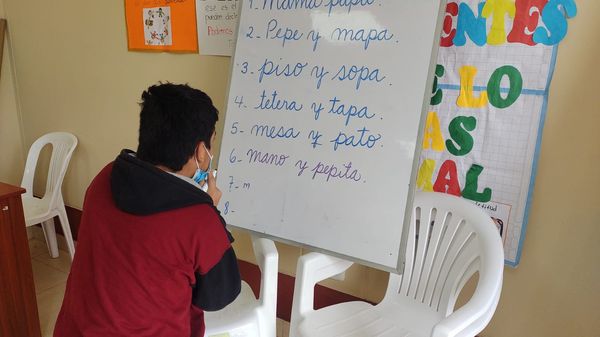 1- Mamá papá.
2- Pepe y mapa.
3- piso y sopa.
4- tetera y tapa.
5- mesa y pato.
6- mano y pepita.
7- m
8-
Podemos
ENTES
LO
AS
MAL